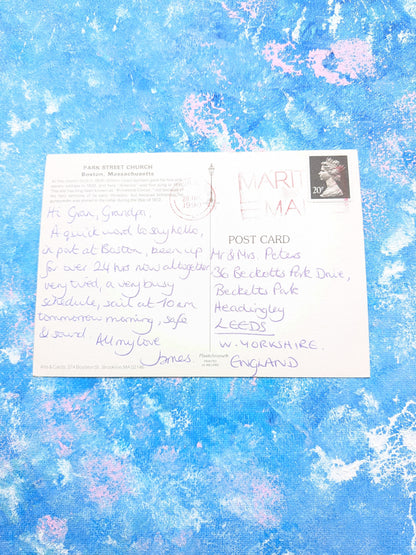 PARK STREET CHURCH
Boston, Massachusetts
Hi Gran, Grandpa,
A quick word to say hello,
in port at Boston, been up
for over 24 hrs now altogether
very tired, a very busy
schedule, sail at 10 am
tommorrow morning, safe
& sound. All my love
James.
Arts & Cards, 374 Boylston St., Brookline, MA 02146
1990
MARIT
E MA
20
POST CARD
Mr & Mrs. Peters
36 Becketts Park Drive,
Becketts Park
Headingley
LEEDS
W. YORKSHIRE.
ENGLAND